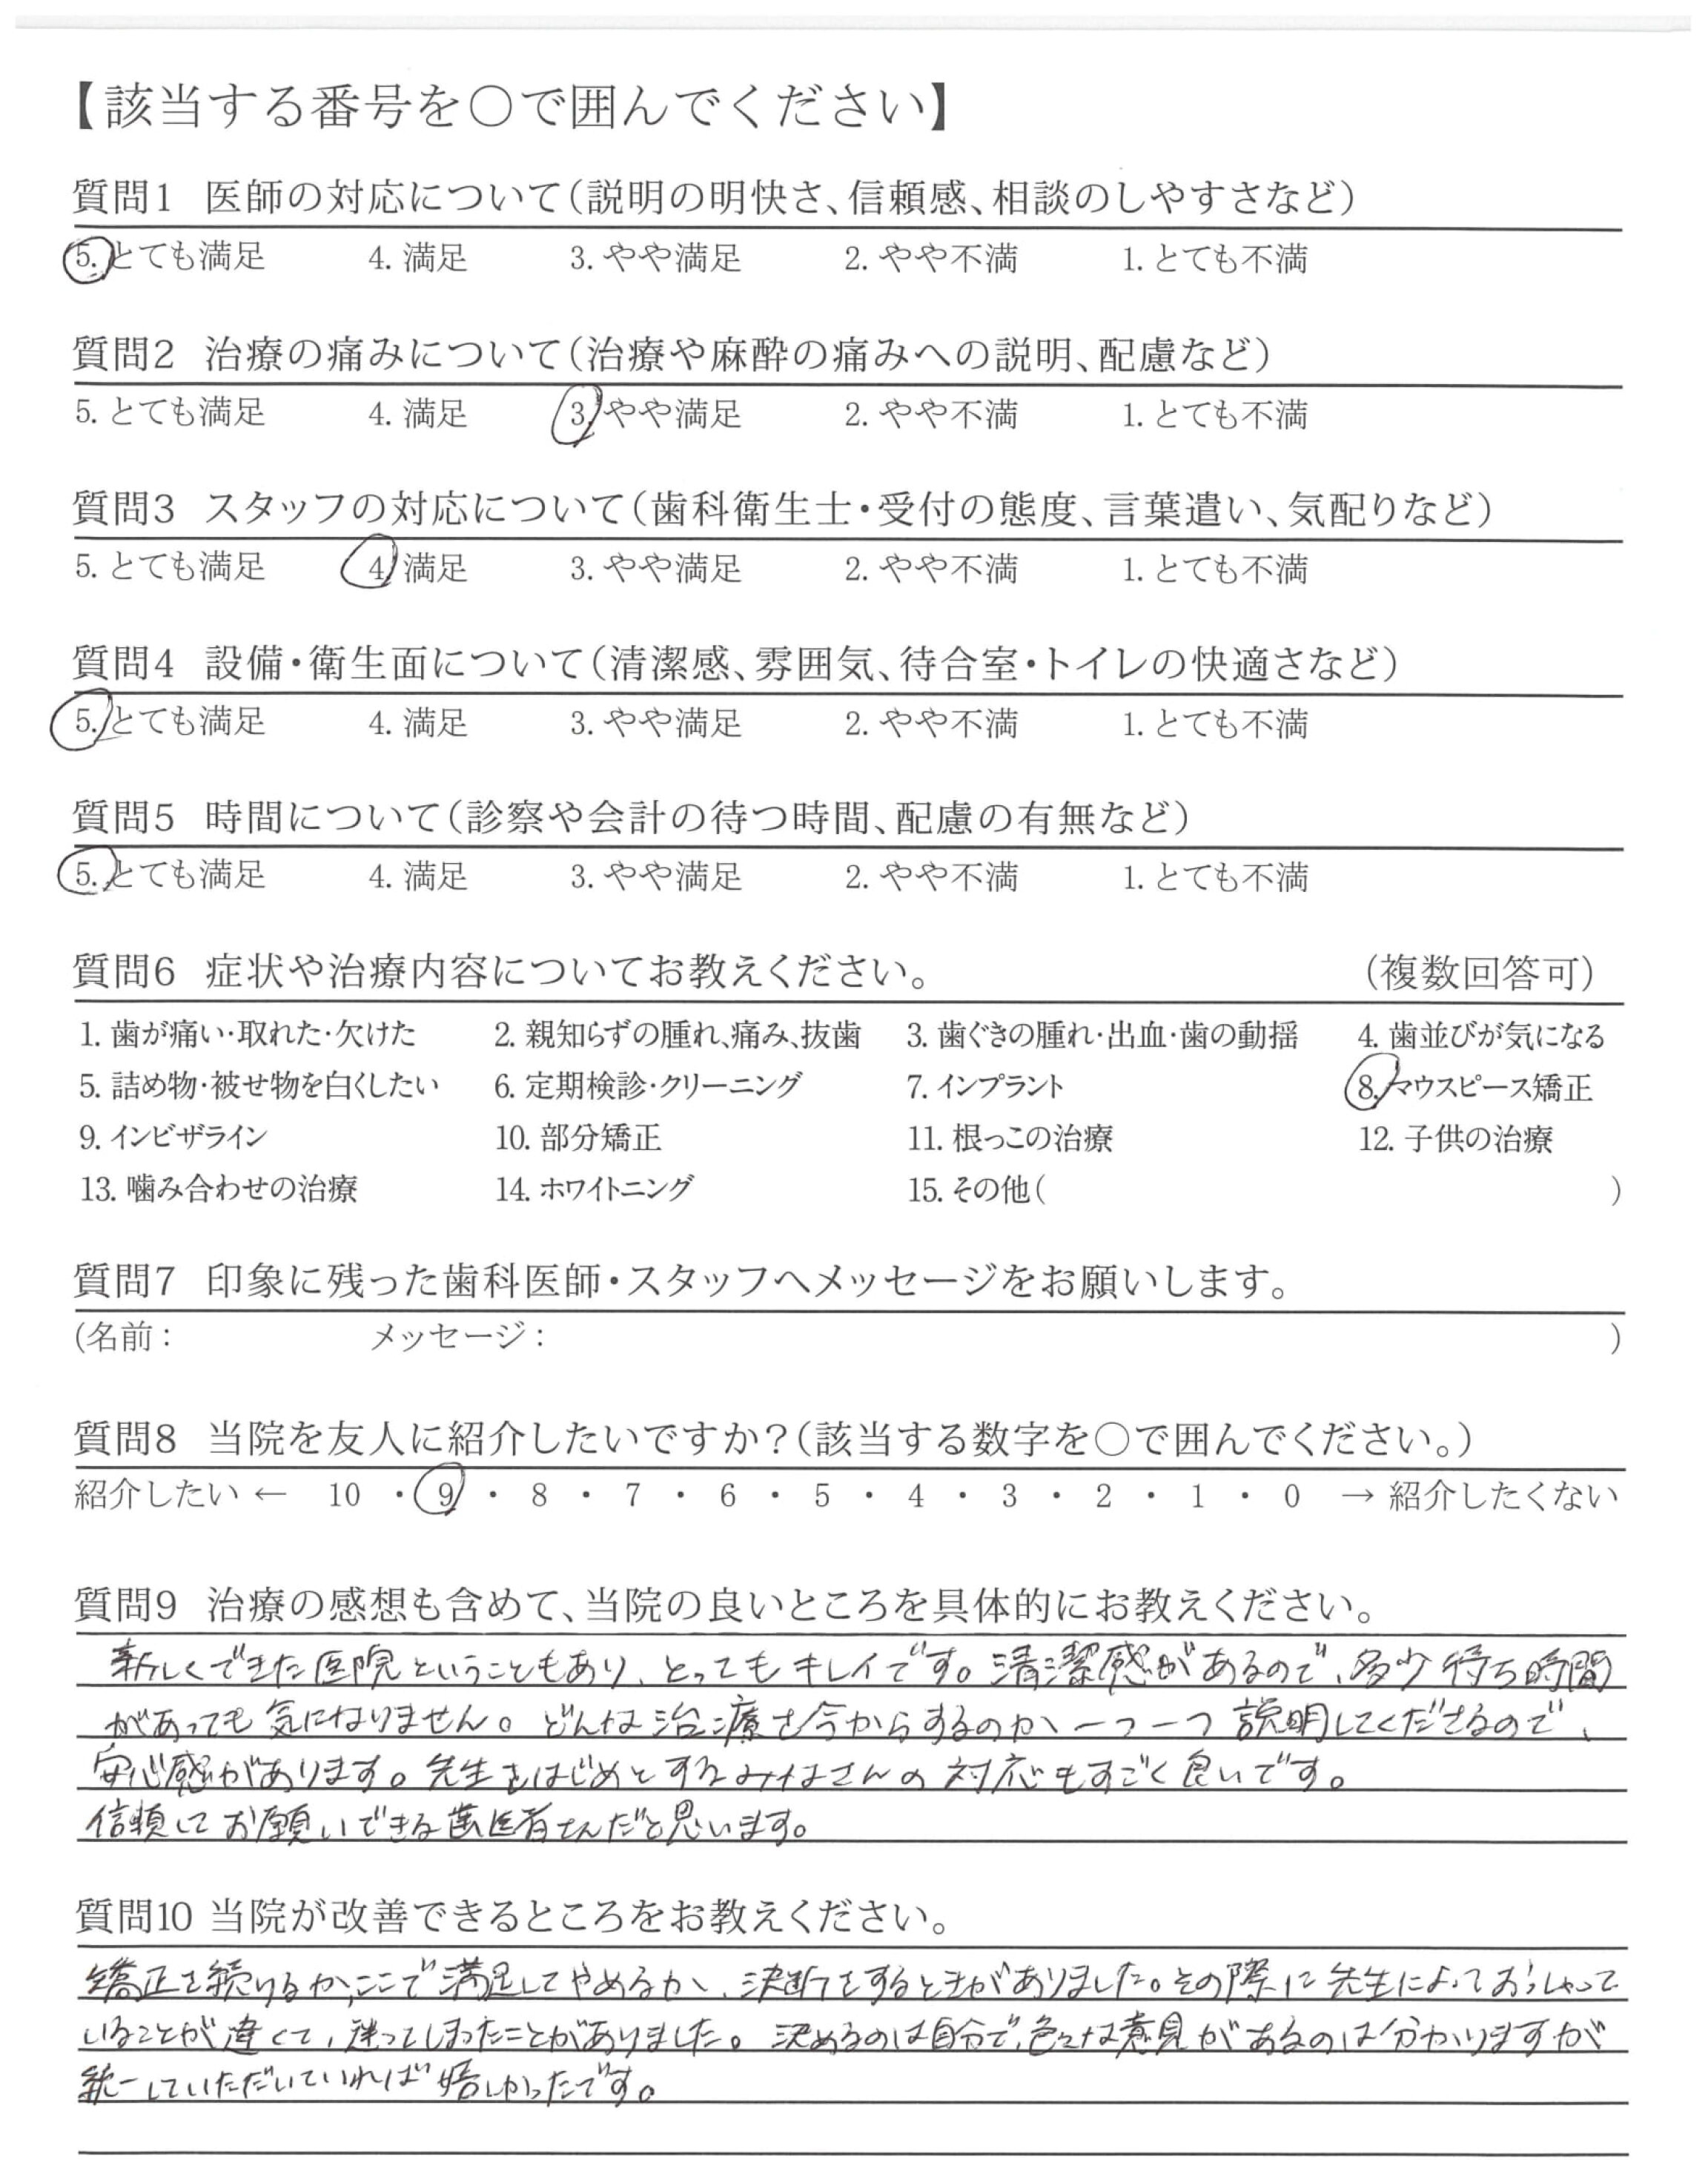 【該当する番号を○で囲んでください】
質問1 医師の対応について(説明の明快さ、信頼感、相談のしやすさなど)
5. とても満足 4. 満足 3. やや満足 2. やや不満 1. とても不満
質問2 治療の痛みについて(治療や麻酔の痛みへの説明、配慮など)
5. とても満足 4. 満足 3. やや満足 2. やや不満 1. とても不満
質問3 スタッフの対応について(歯科衛生士・受付の態度、言葉遣い、気配りなど)
5. とても満足 4. 満足 3. やや満足 2. やや不満 1. とても不満
質問4 設備・衛生面について(清潔感、雰囲気、待合室・トイレの快適さなど)
5. とても満足 4. 満足 3. やや満足 2. やや不満 1. とても不満
質問5 時間について(診察や会計の待つ時間、配慮の有無など)
5. とても満足 4. 満足 3. やや満足 2. やや不満 1. とても不満
質問6 症状や治療内容についてお教えください。 (複数回答可)
1. 歯が痛い・取れた・欠けた 2. 親知らずの腫れ、痛み、抜歯 3. 歯ぐきの腫れ・出血・歯の動揺 4. 歯並びが気になる
5. 詰め物・被せ物を白くしたい 6. 定期検診・クリーニング 7. インプラント 8. マウスピース矯正
9. インビザライン 10. 部分矯正 11. 根っこの治療 12. 子供の治療
13. 噛み合わせの治療 14. ホワイトニング 15. その他( )
質問7 印象に残った歯科医師・スタッフへメッセージをお願いします。
(名前: メッセージ: )
質問8 当院を友人に紹介したいですか?(該当する数字を○で囲んでください。)
紹介したい ← 10 ・ 9 ・ 8 ・ 7 ・ 6 ・ 5 ・ 4 ・ 3 ・ 2 ・ 1 ・ 0 → 紹介したくない
質問9 治療の感想も含めて、当院の良いところを具体的にお教えください。
新しくできた医院ということもあり、とってもキレイです。清潔感があるので、多少待ち時間
があっても気になりません。どんな治療を今からするのか、一つ一つ説明してくださるので、
安心感があります。先生をはじめとするみなさんの対応もすごく良いです。
信頼してお願いできる歯医者さんだと思います。
質問10 当院が改善できるところをお教えください。
矯正を続けるか、ここで満足してやめるか、決断をするときがありました。その際に先生によっておっしゃって
いることが違くて、迷ってしまったことがありました。決めるのは自分で、色々な意見があるのは分かりますが
統一していただいていれば嬉しかったです。